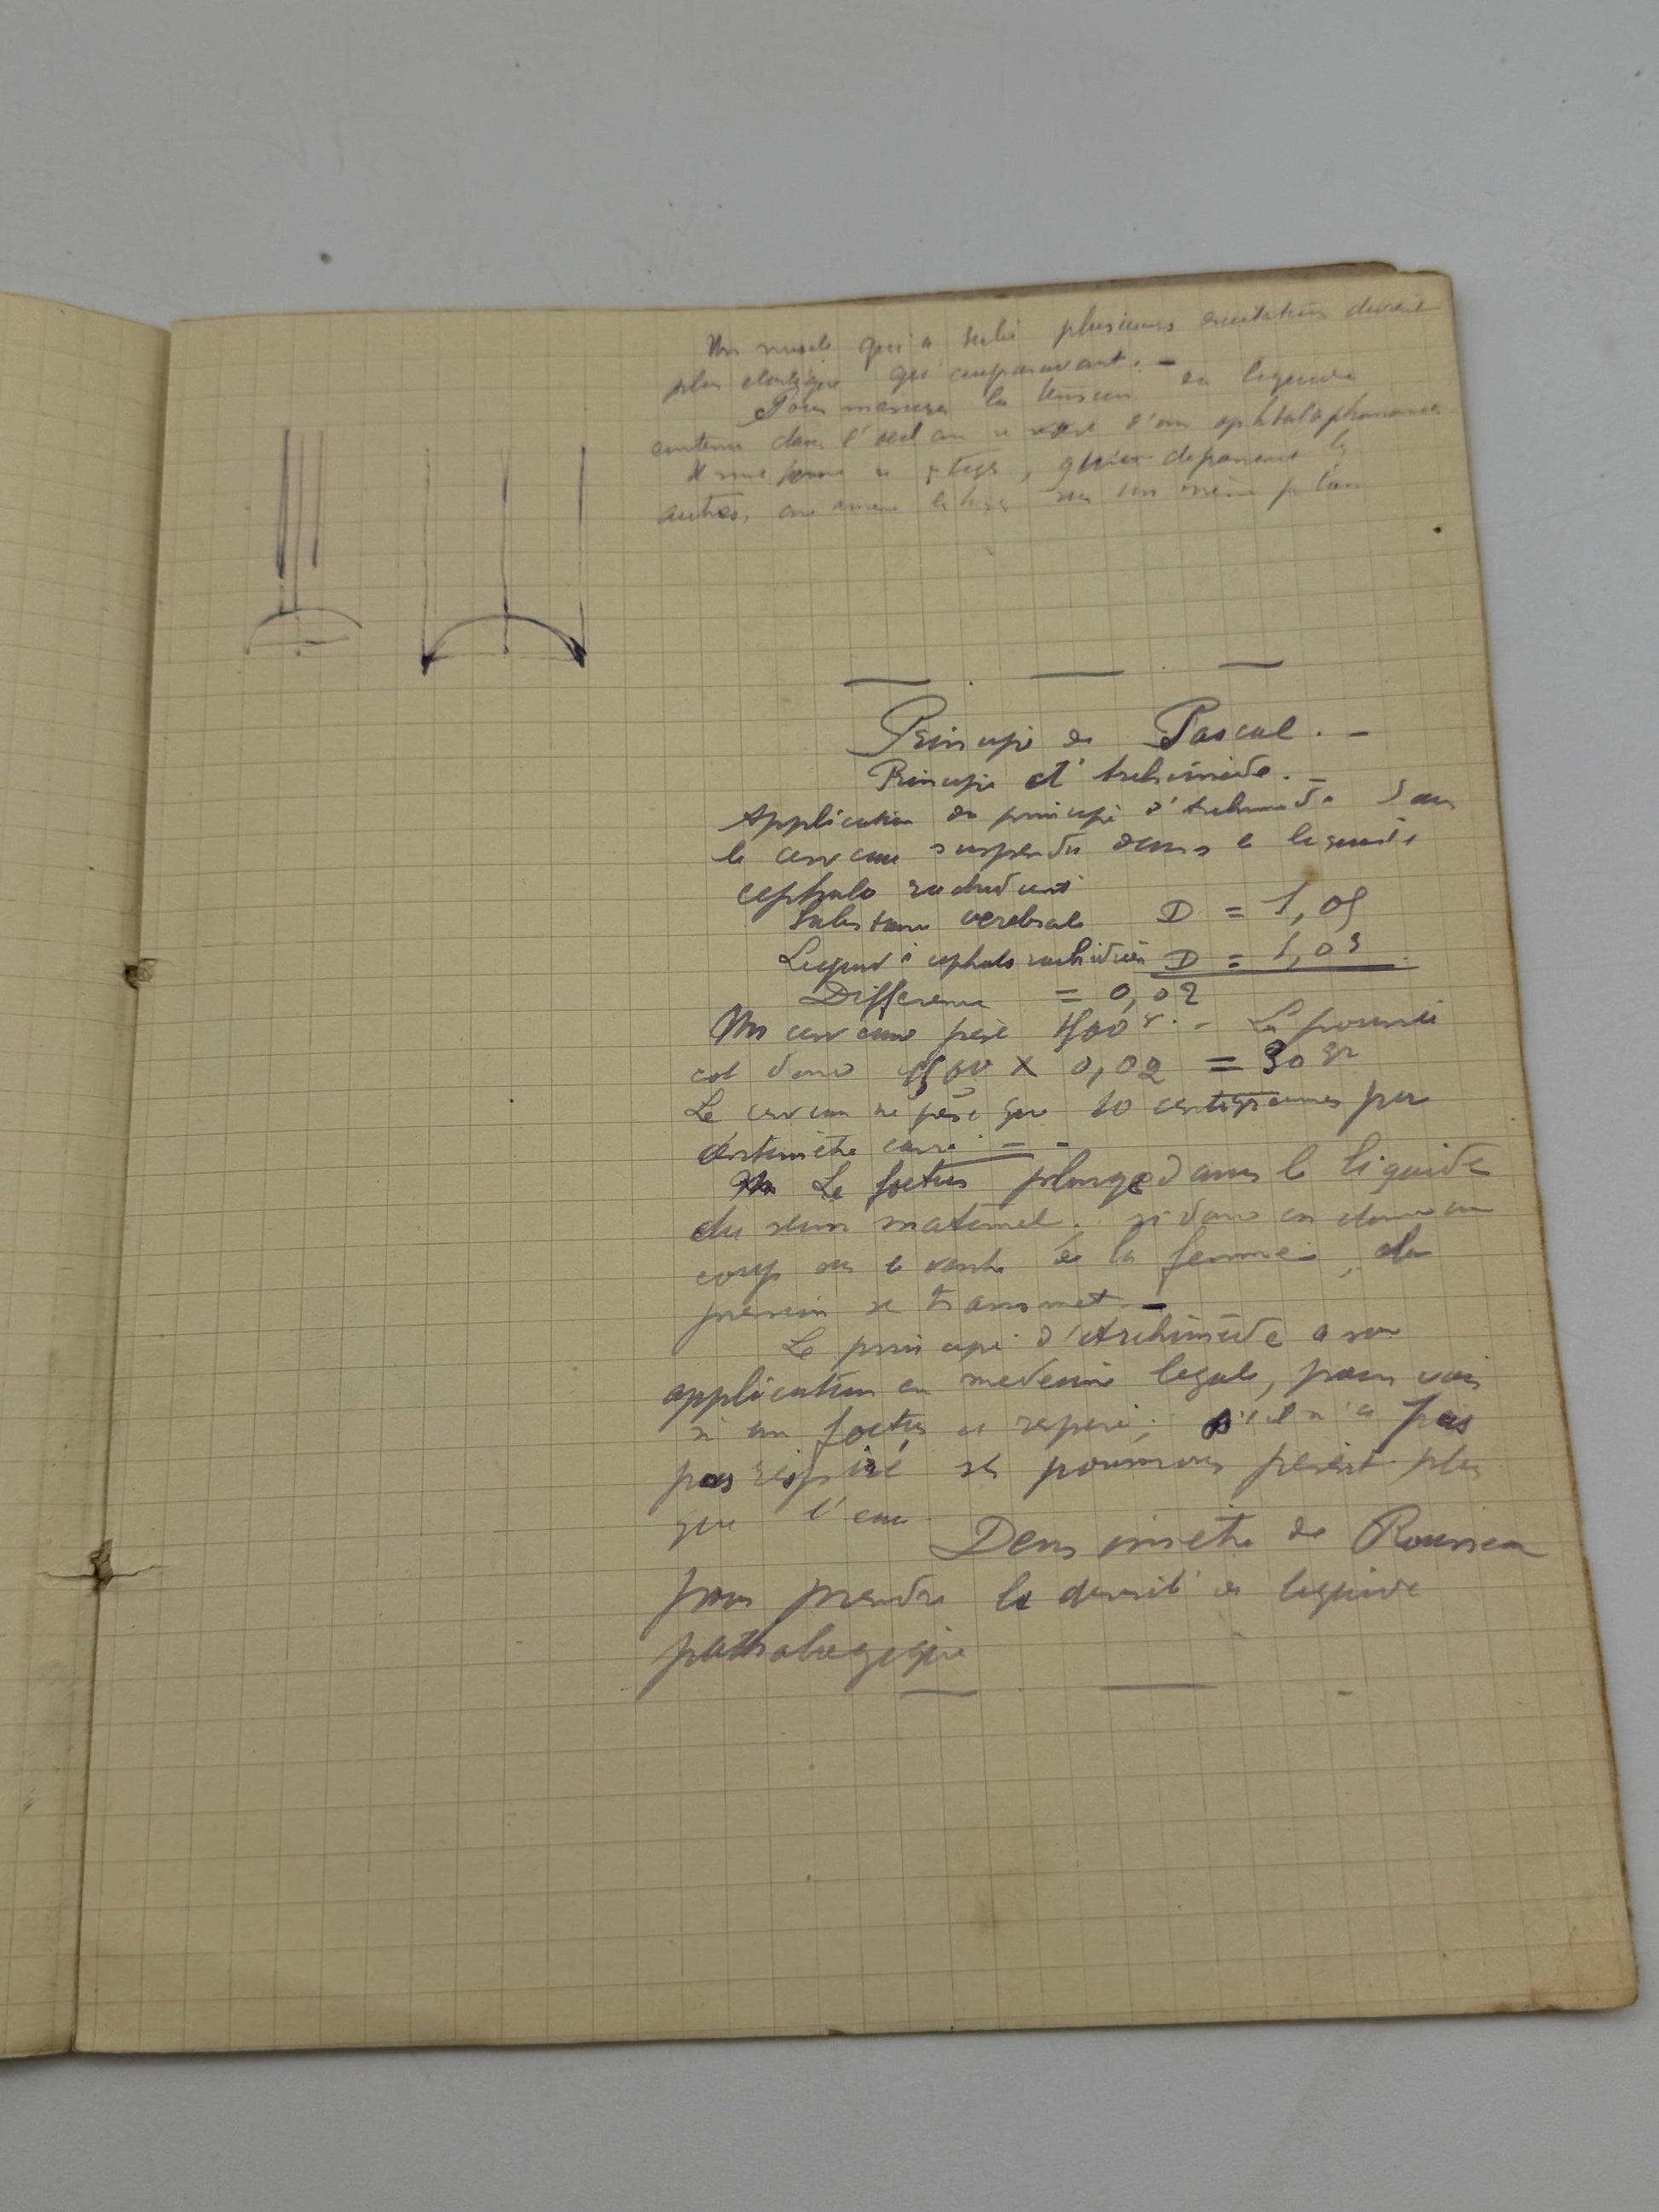 Un muscle qui a subi plusieurs excitations devient
plus elastique qu'auparavant. -
Pour mesurer la tension du liquide
contenu dans l'oeil on se sert d'un
autres, on amene les tiges sur un même plan
Principe de Pascal. -
Principe d'Archimède. -
Application du principe d'Archimède dans
le cerveau suspendu dans le liquide
cephalo rachidien
Substance cerebrale D = 1,05
Liquide cephalo rachidien D = 1,03
Difference = 0,02
Un cerveau pèse 1500 gr. - La poussée
est donc 1500 X 0,02 = 30 gr
Le cerveau ne pèse que 10 centigrammes par
centimètre carré. =
Le foetus plonge dans le liquide
du sein maternel; si donc on donne un
coup sur le ventre de la femme, la
pression se transmet. -
Le principe d'Archimède a son
application en medecine legale, pour voir
si un foetus a respiré; s'il n'a pas
pas respiré ses poumons pèsent plus
que l'eau
Densimètre de Rousseau
pour prendre la densité de liquide
pathologique